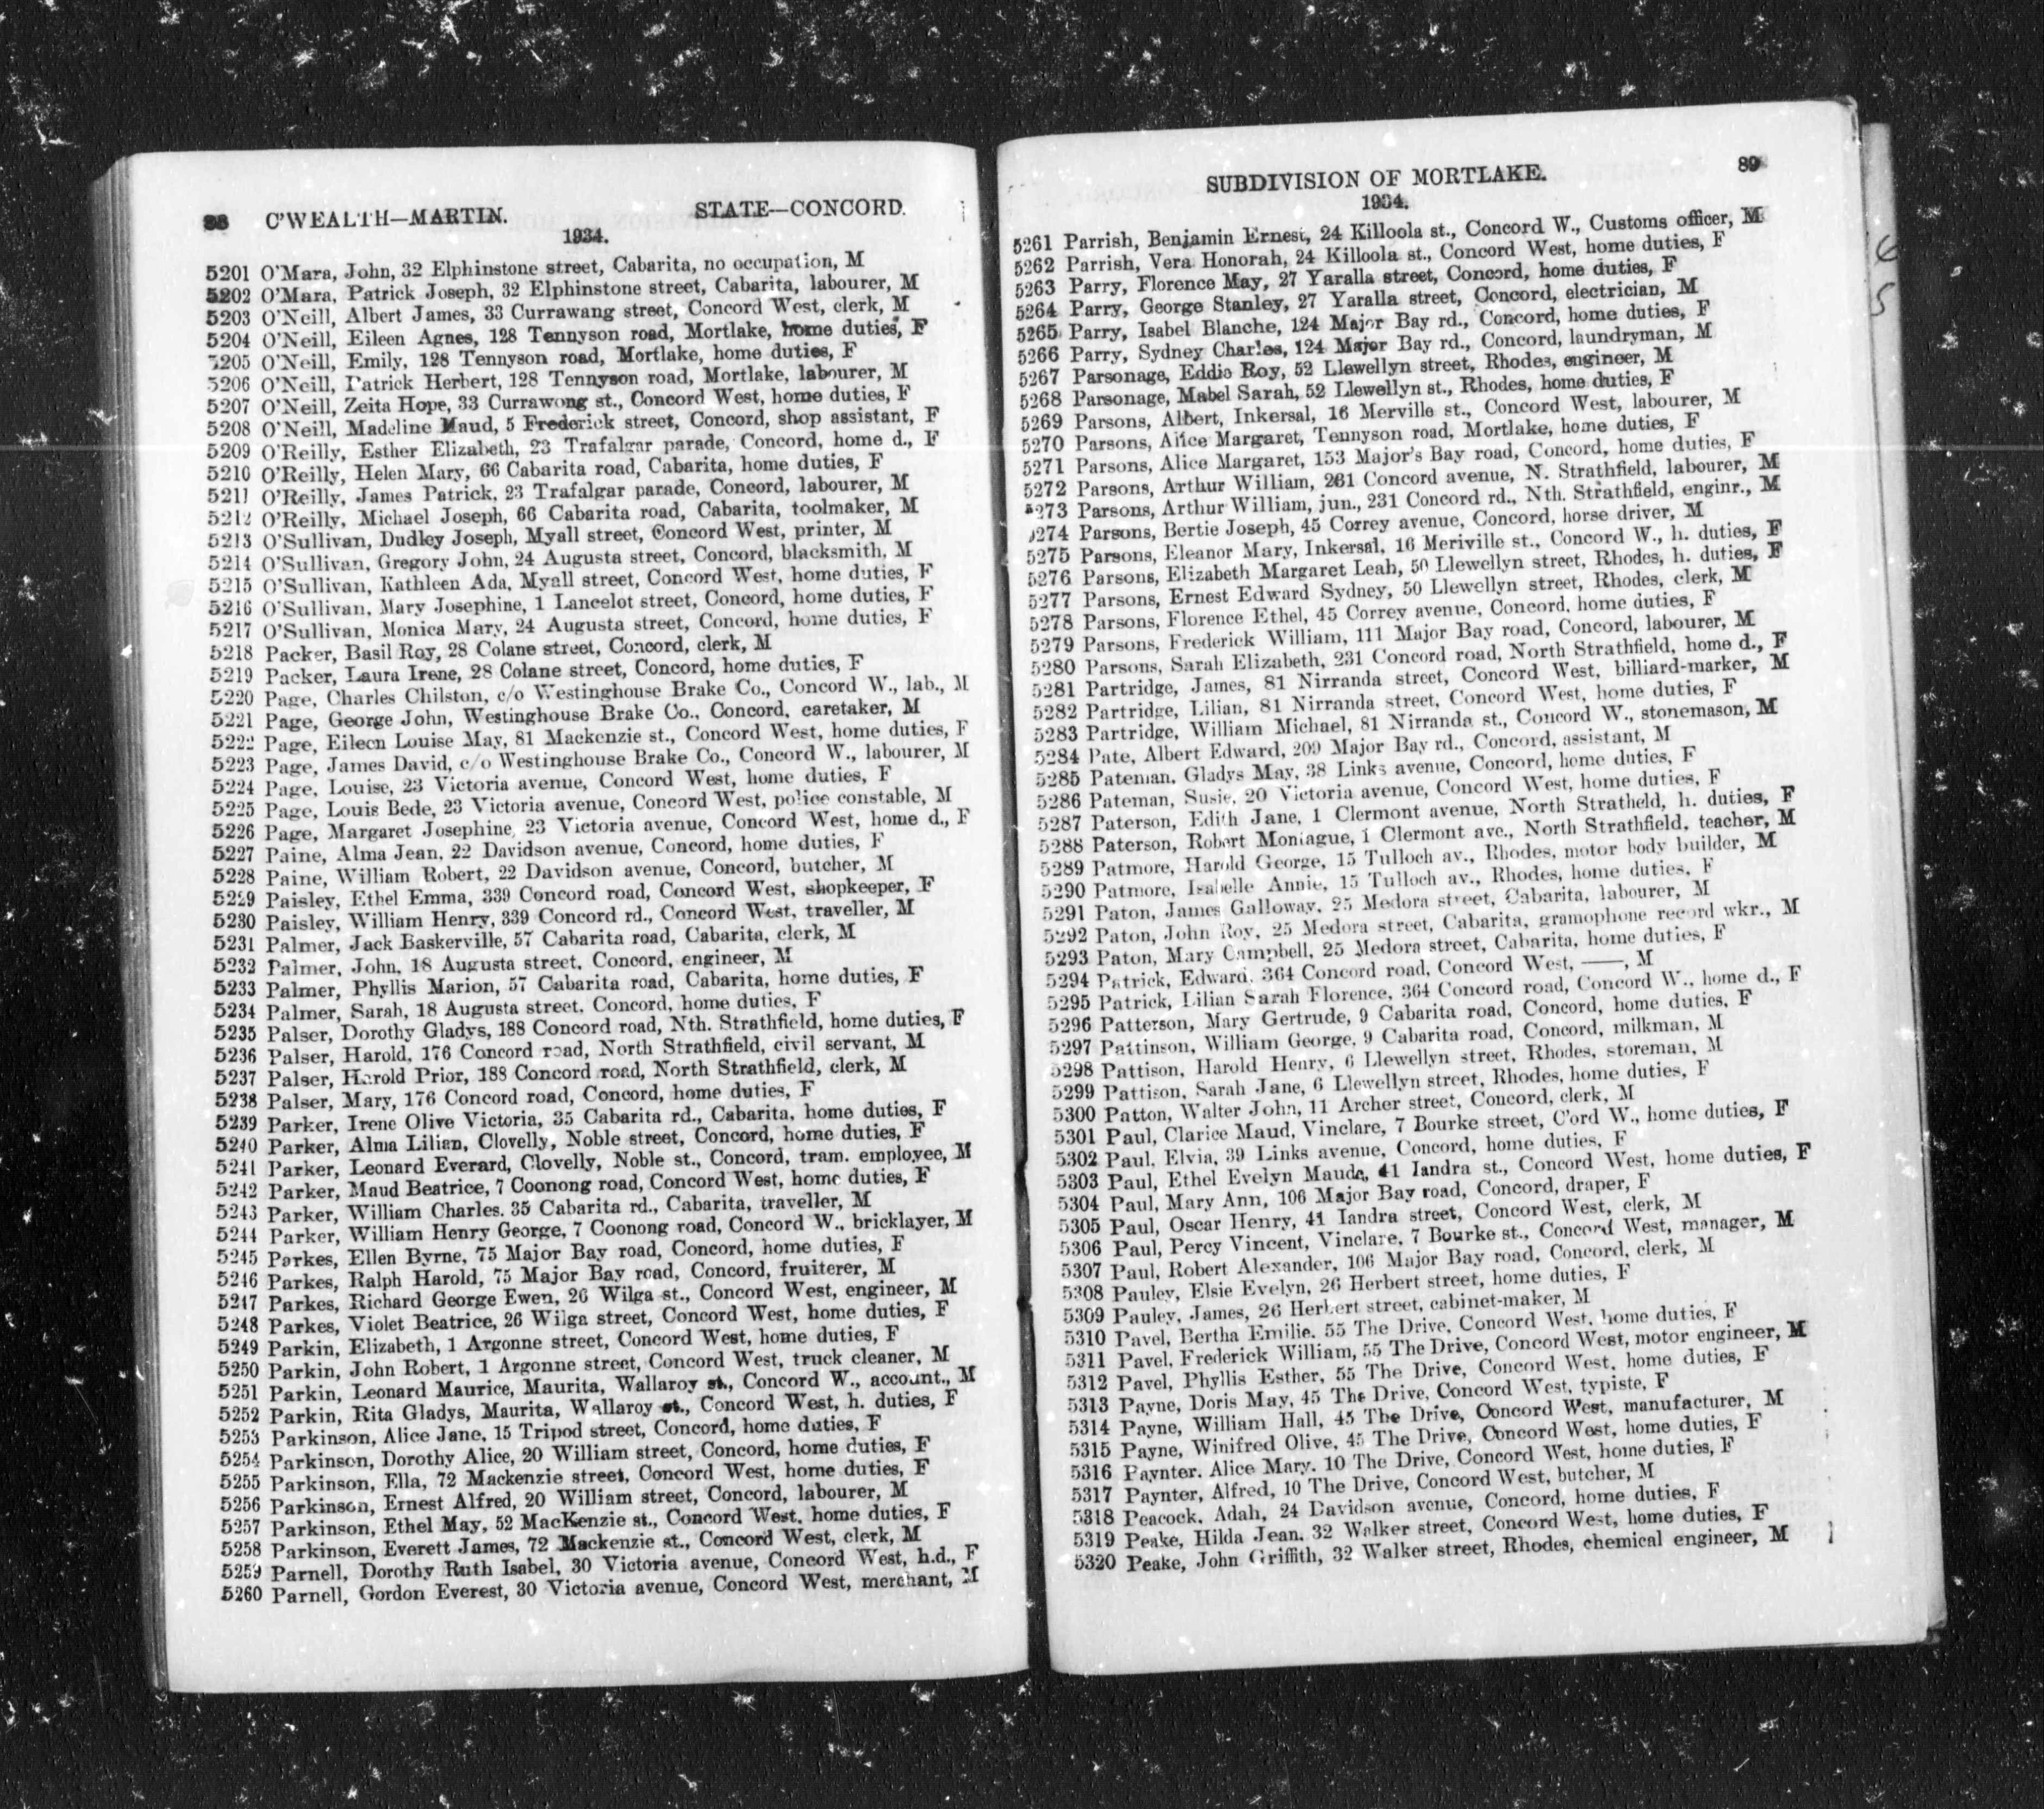 88 C'WEALTH—MARTIN. STATE—CONCORD.
1934.
5201 O'Mara, John, 32 Elphinstone street, Cabarita, no occupation, M
5202 O'Mara, Patrick Joseph, 32 Elphinstone street, Cabarita, labourer, M
5203 O'Neill, Albert James, 33 Currawang street, Concord West, clerk, M
5204 O'Neill, Eileen Agnes, 128 Tennyson road, Mortlake, home duties, F
5205 O'Neill, Emily, 128 Tennyson road, Mortlake, home duties, F
5206 O'Neill, Patrick Herbert, 128 Tennyson road, Mortlake, labourer, M
5207 O'Neill, Zeita Hope, 33 Currawong st., Concord West, home duties, F
5208 O'Neill, Madeline Maud, 5 Frederick street, Concord, shop assistant, F
5209 O'Reilly, Esther Elizabeth, 23 Trafalgar parade, Concord, home d., F
5210 O'Reilly, Helen Mary, 66 Cabarita road, Cabarita, home duties, F
5211 O'Reilly, James Patrick, 23 Trafalgar parade, Concord, labourer, M
5212 O'Reilly, Michael Joseph, 66 Cabarita road, Cabarita, toolmaker, M
5213 O'Sullivan, Dudley Joseph, Myall street, Concord West, printer, M
5214 O'Sullivan, Gregory John, 24 Augusta street, Concord, blacksmith, M
5215 O'Sullivan, Kathleen Ada, Myall street, Concord West, home duties, F
5216 O'Sullivan, Mary Josephine, 1 Lancelot street, Concord, home duties, F
5217 O'Sullivan, Monica Mary, 24 Augusta street, Concord, home duties, F
5218 Packer, Basil Roy, 28 Colane street, Concord, clerk, M
5219 Packer, Laura Irene, 28 Colane street, Concord, home duties, F
5220 Page, Charles Chilston, c/o Westinghouse Brake Co., Concord W., lab., M
5221 Page, George John, Westinghouse Brake Co., Concord, caretaker, M
5222 Page, Eileen Louise May, 81 Mackenzie st., Concord West, home duties, F
5223 Page, James David, c/o Westinghouse Brake Co., Concord W., labourer, M
5224 Page, Louise, 23 Victoria avenue, Concord West, home duties, F
5225 Page, Louis Bede, 23 Victoria avenue, Concord West, police constable, M
5226 Page, Margaret Josephine, 23 Victoria avenue, Concord West, home d., F
5227 Paine, Alma Jean, 22 Davidson avenue, Concord, home duties, F
5228 Paine, William Robert, 22 Davidson avenue, Concord, butcher, M
5229 Paisley, Ethel Emma, 339 Concord road, Concord West, shopkeeper, F
5230 Paisley, William Henry, 339 Concord rd., Concord West, traveller, M
5231 Palmer, Jack Baskerville, 57 Cabarita road, Cabarita, clerk, M
5232 Palmer, John, 18 Augusta street, Concord, engineer, M
5233 Palmer, Phyllis Marion, 57 Cabarita road, Cabarita, home duties, F
5234 Palmer, Sarah, 18 Augusta street, Concord, home duties, F
5235 Palser, Dorothy Gladys, 188 Concord road, Nth. Strathfield, home duties, F
5236 Palser, Harold, 176 Concord road, North Strathfield, civil servant, M
5237 Palser, Harold Prior, 188 Concord road, North Strathfield, clerk, M
5238 Palser, Mary, 176 Concord road, Concord, home duties, F
5239 Parker, Irene Olive Victoria, 35 Cabarita rd., Cabarita, home duties, F
5240 Parker, Alma Lilian, Clovelly, Noble street, Concord, home duties, F
5241 Parker, Leonard Everard, Clovelly, Noble st., Concord, tram. employee, M
5242 Parker, Maud Beatrice, 7 Coonong road, Concord West, home duties, F
5243 Parker, William Charles, 35 Cabarita rd., Cabarita, traveller, M
5244 Parker, William Henry George, 7 Coonong road, Concord W., bricklayer, M
5245 Parkes, Ellen Byrne, 75 Major Bay road, Concord, home duties, F
5246 Parkes, Ralph Harold, 75 Major Bay road, Concord, fruiterer, M
5247 Parkes, Richard George Ewen, 26 Wilga st., Concord West, engineer, M
5248 Parkes, Violet Beatrice, 26 Wilga street, Concord West, home duties, F
5249 Parkin, Elizabeth, 1 Argonne street, Concord West, home duties, F
5250 Parkin, John Robert, 1 Argonne street, Concord West, truck cleaner, M
5251 Parkin, Leonard Maurice, Maurita, Wallaroy st., Concord W., account., M
5252 Parkin, Rita Gladys, Maurita, Wallaroy st., Concord West, h. duties, F
5253 Parkinson, Alice Jane, 15 Tripod street, Concord, home duties, F
5254 Parkinson, Dorothy Alice, 20 William street, Concord, home duties, F
5255 Parkinson, Ella, 72 Mackenzie street, Concord West, home duties, F
5256 Parkinson, Ernest Alfred, 20 William street, Concord, labourer, M
5257 Parkinson, Ethel May, 52 MacKenzie st., Concord West, home duties, F
5258 Parkinson, Everett James, 72 Mackenzie st., Concord West, clerk, M
5259 Parnell, Dorothy Ruth Isabel, 30 Victoria avenue, Concord West, h.d., F
5260 Parnell, Gordon Everest, 30 Victoria avenue, Concord West, merchant, M
SUBDIVISION OF MORTLAKE. 89
1934.
5261 Parrish, Benjamin Ernest, 24 Killoola st., Concord W., Customs officer, M
5262 Parrish, Vera Honorah, 24 Killoola st., Concord West, home duties, F
5263 Parry, Florence May, 27 Yaralla street, Concord, home duties, F
5264 Parry, George Stanley, 27 Yaralla street, Concord, electrician, M
5265 Parry, Isabel Blanche, 124 Major Bay rd., Concord, home duties, F
5266 Parry, Sydney Charles, 124 Major Bay rd., Concord, laundryman, M
5267 Parsonage, Eddie Roy, 52 Llewellyn street, Rhodes, engineer, M
5268 Parsonage, Mabel Sarah, 52 Llewellyn st., Rhodes, home duties, F
5269 Parsons, Albert, Inkersal, 16 Merville st., Concord West, labourer, M
5270 Parsons, Alice Margaret, Tennyson road, Mortlake, home duties, F
5271 Parsons, Alice Margaret, 153 Major's Bay road, Concord, home duties, F
5272 Parsons, Arthur William, 261 Concord avenue, N. Strathfield, labourer, M
5273 Parsons, Arthur William, jun., 231 Concord rd., Nth. Strathfield, enginr., M
5274 Parsons, Bertie Joseph, 45 Correy avenue, Concord, horse driver, M
5275 Parsons, Eleanor Mary, Inkersal, 16 Meriville st., Concord W., h. duties, F
5276 Parsons, Elizabeth Margaret Leah, 50 Llewellyn street, Rhodes, h. duties, F
5277 Parsons, Ernest Edward Sydney, 50 Llewellyn street, Rhodes, clerk, M
5278 Parsons, Florence Ethel, 45 Correy avenue, Concord, home duties, F
5279 Parsons, Frederick William, 111 Major Bay road, Concord, labourer, M
5280 Parsons, Sarah Elizabeth, 231 Concord road, North Strathfield, home d., F
5281 Partridge, James, 81 Nirranda street, Concord West, billiard-marker, M
5282 Partridge, Lilian, 81 Nirranda street, Concord West, home duties, F
5283 Partridge, William Michael, 81 Nirranda st., Concord W., stonemason, M
5284 Pate, Albert Edward, 209 Major Bay rd., Concord, assistant, M
5285 Pateman, Gladys May, 38 Links avenue, Concord, home duties, F
5286 Pateman, Susie, 20 Victoria avenue, Concord West, home duties, F
5287 Paterson, Edith Jane, 1 Clermont avenue, North Stratheld, h. duties, F
5288 Paterson, Robert Montague, 1 Clermont ave., North Strathfield, teacher, M
5289 Patmore, Harold George, 15 Tulloch av., Rhodes, motor body builder, M
5290 Patmore, Isabelle Annie, 15 Tulloch av., Rhodes, home duties, F
5291 Paton, James Galloway, 25 Medora street, Cabarita, labourer, M
5292 Paton, John Roy, 25 Medora street, Cabarita, gramophone record wkr., M
5293 Paton, Mary Campbell, 25 Medora street, Cabarita, home duties, F
5294 Patrick, Edward, 364 Concord road, Concord West, ——, M
5295 Patrick, Lilian Sarah Florence, 364 Concord road, Concord W., home d., F
5296 Patterson, Mary Gertrude, 9 Cabarita road, Concord, home duties, F
5297 Pattinson, William George, 9 Cabarita road, Concord, milkman, M
5298 Pattison, Harold Henry, 6 Llewellyn street, Rhodes, storeman, M
5299 Pattison, Sarah Jane, 6 Llewellyn street, Rhodes, home duties, F
5300 Patton, Walter John, 11 Archer street, Concord, clerk, M
5301 Paul, Clarice Maud, Vinclare, 7 Bourke street, C'ord W., home duties, F
5302 Paul, Elvia, 39 Links avenue, Concord, home duties, F
5303 Paul, Ethel Evelyn Maude, 41 Iandra st., Concord West, home duties, F
5304 Paul, Mary Ann, 106 Major Bay road, Concord, draper, F
5305 Paul, Oscar Henry, 41 Iandra street, Concord West, clerk, M
5306 Paul, Percy Vincent, Vinclare, 7 Bourke st., Concord West, manager, M
5307 Paul, Robert Alexander, 106 Major Bay road, Concord, clerk, M
5308 Pauley, Elsie Evelyn, 26 Herbert street, home duties, F
5309 Pauley, James, 26 Herbert street, cabinet-maker, M
5310 Pavel, Bertha Emilie, 55 The Drive, Concord West, home duties, F
5311 Pavel, Frederick William, 55 The Drive, Concord West, motor engineer, M
5312 Pavel, Phyllis Esther, 55 The Drive, Concord West, home duties, F
5313 Payne, Doris May, 45 The Drive, Concord West, typiste, F
5314 Payne, William Hall, 45 The Drive, Concord West, manufacturer, M
5315 Payne, Winifred Olive, 45 The Drive, Concord West, home duties, F
5316 Paynter, Alice Mary, 10 The Drive, Concord West, home duties, F
5317 Paynter, Alfred, 10 The Drive, Concord West, butcher, M
5318 Peacock, Adah, 24 Davidson avenue, Concord, home duties, F
5319 Peake, Hilda Jean, 32 Walker street, Concord West, home duties, F
5320 Peake, John Griffith, 32 Walker street, Rhodes, chemical engineer, M